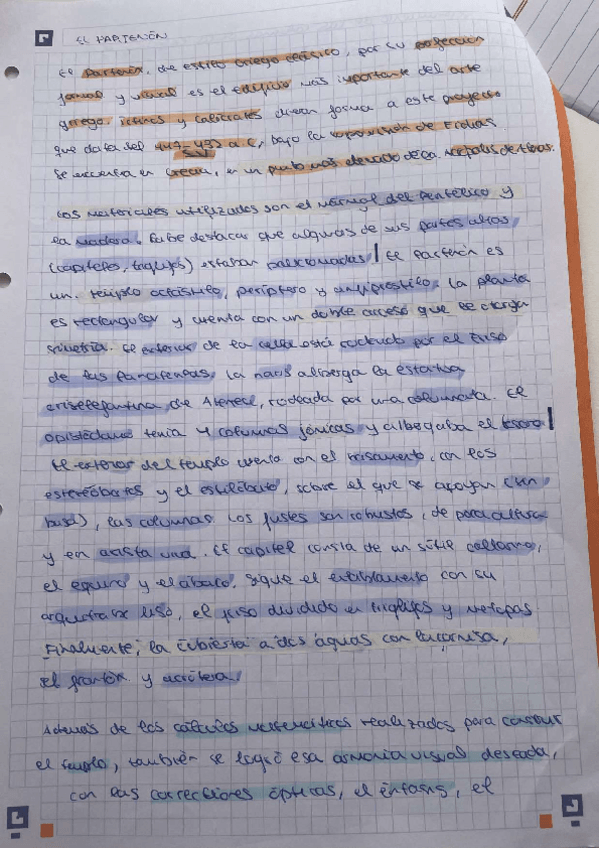 EL PARTENÓN
El Partenón, de estilo griego clásico, por su proyección
formal y visual es el edificio más importante del arte
griego. Ictinos y Calícrates dieron forma a este proyecto
que data del 447-432 a.C, bajo la supervisión de Fidias.
S.V
Se encuentra en Grecia, en un punto más elevado de la Acrópolis de Atenas.
Los materiales utilizados son el mármol del Pentélico y
la madera. Cabe destacar que algunas de sus partes altas
(capiteles, triglifos) estaban policromadas / El Partenón es
un templo octástilo, períptero y anfipróstilo. La planta
es rectangular y cuenta con un doble acceso que le otorga
simetría. El exterior de la cella está rodeado por el friso
de las Panateneas, la naos alberga la estatua
criselefantina de Atenea, rodeada por una columnata. El
opistódomo tenía 4 columnas jónicas y albergaba el tesoro /
El exterior del templo cuenta con el basamento, con los
estereóbatos y el estilóbato, sobre el que se apoyan (sin
basa), las columnas. Los fustes son robustos, de poca altura
y en arista viva. El capitel consta de un sutil collarino,
el equino y el ábaco. Sigue el entablamento con su
arquitrabe liso, el friso dividido en triglifos y metopas
Finalmente, la cubierta a dos aguas con la cornisa,
el frontón y acrótera /
Además de los cálculos matemáticos realizados para construir
el templo, también se logró esa armonía visual deseada,
con las correcciones ópticas, el énfasis, el